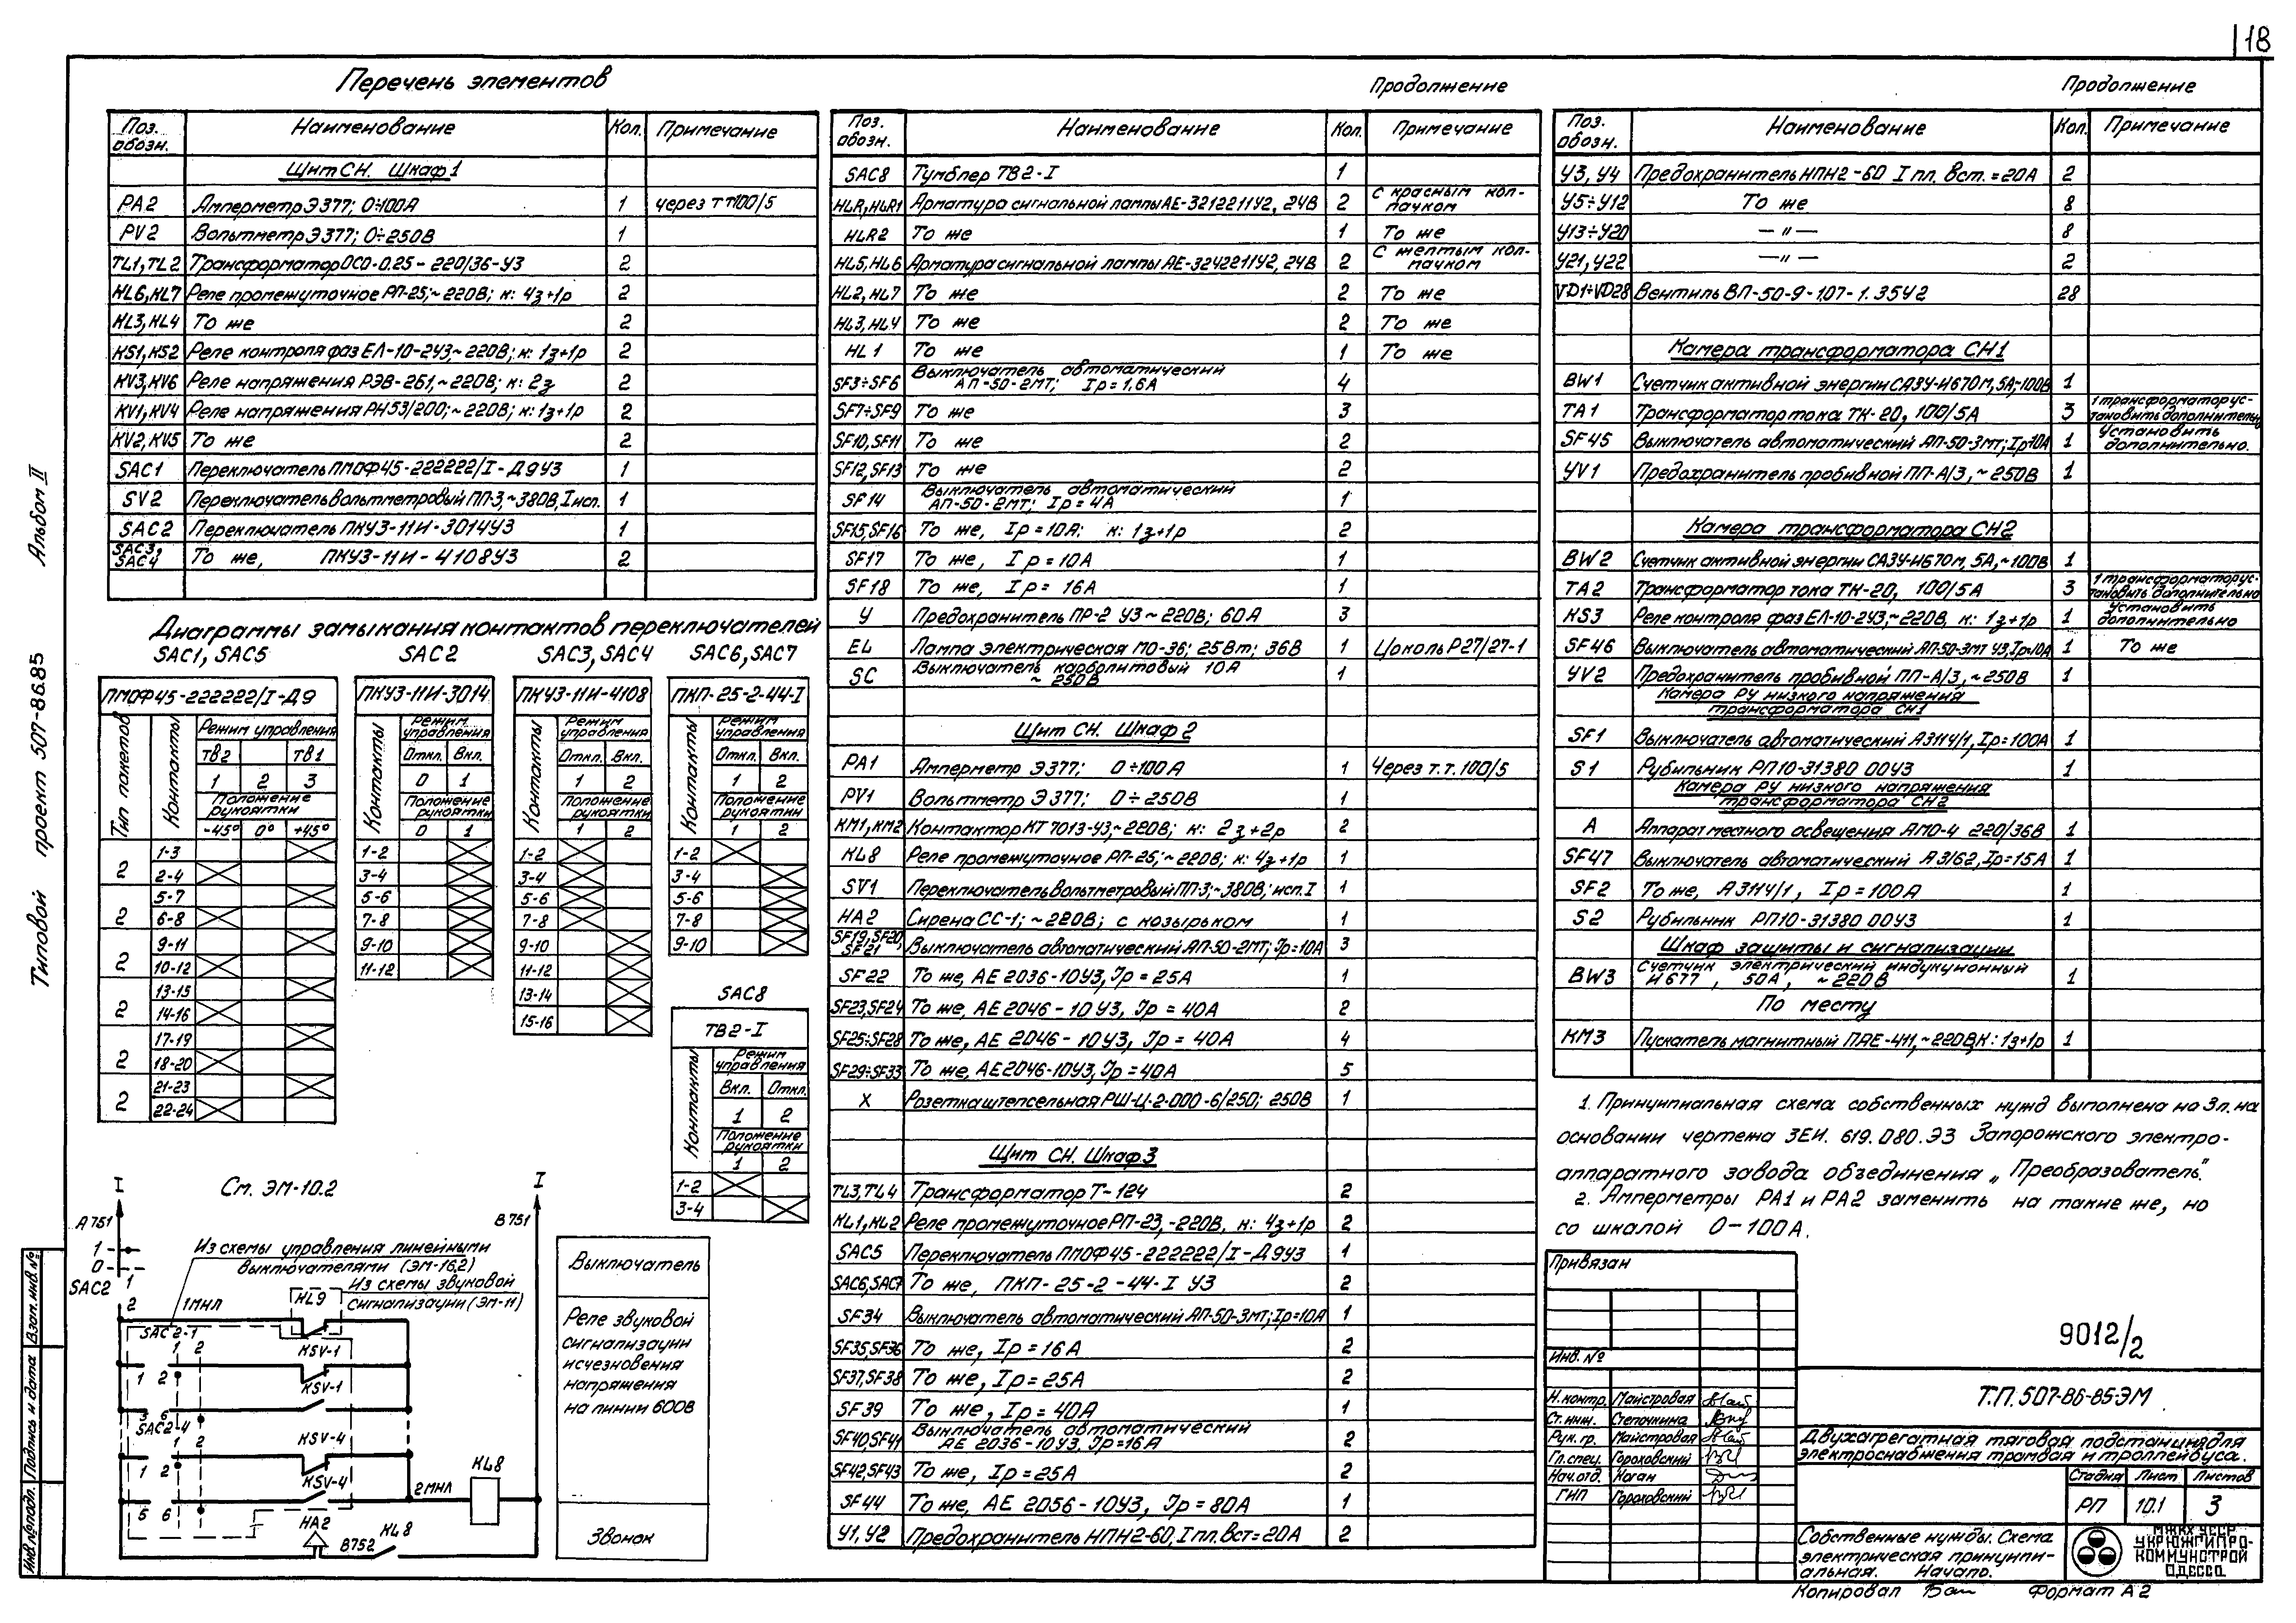 18
Перечень элементов
Поз. обозн. Наименование Кол. Примечание
Щит СН. Шкаф 1
PA2 Амперметр Э377; 0÷100А 1 через тт100/5
PV2 Вольтметр Э377; 0÷250В 1
TL1, TL2 Трансформатор ОСО-0.25-220/36-У3 2
KL6, KL7 Реле промежуточное РП-25; ~220В; к: 4з+1р 2
KL3, KL4 То же 2
KS1, KS2 Реле контроля фаз ЕЛ-10-2У3, ~220В; к: 1з+1р 2
KV3, KV6 Реле напряжения РЭВ-261, ~220В; к: 2з 2
KV1, KV4 Реле напряжения РН53/200; ~220В; к: 1з+1р 2
KV2, KV5 То же 2
SAC1 Переключатель ПМОФ45-222222/I-Д9У3 1
SV2 Переключатель вольтметровый ПП-3, ~380В, I исп. 1
SAC2 Переключатель ПКУ3-11И-3014У3 1
SAC3, SAC4 То же, ПКУ3-11И-4108У3 2
Диаграммы замыкания контактов переключателей
SAC1, SAC5 SAC2 SAC3, SAC4 SAC6, SAC7
ПМОФ45-222222/I-Д9
Тип пакетов Контакты Режим управления
ТВ2 ТВ1
1 2 3
Положение рукоятки
-45° 0° +45°
2 1-3
2-4
2 5-7
6-8
2 9-11
10-12
2 13-15
14-16
2 17-19
18-20
2 21-23
22-24
ПКУ3-11И-3014
Контакты Режим управления
Откл. Вкл.
0 1
Положение рукоятки
0 1
1-2
3-4
5-6
7-8
9-10
11-12
ПКУ3-11И-4108
Контакты Режим управления
Откл. Вкл.
1 2
Положение рукоятки
1 2
1-2
3-4
5-6
7-8
9-10
11-12
13-14
15-16
ПКП-25-2-44-I
Контакты Режим управления
Откл. Вкл.
1 2
Положение рукоятки
1 2
1-2
3-4
5-6
7-8
9-10
SAC8
ТВ2-I
Контакты Режим управления
Вкл. Откл.
1 2
Положение рукоятки
1 2
1-2
3-4
См. ЭМ-10.2
I I
А751 В751
1
0
SAC2 1
2
Из схемы управления линейными
выключателями (ЭМ-16,2)
Из схемы звуковой
сигнализации (ЭМ-11)
1МНЛ KL9
SAC2-1
1 2
KSV-1
1 2
KSV-1
5 6
SAC2-4
1 2
KSV-4
1 2
KSV-4
2МНЛ KL8
5 6
HA2 В752 KL8
Выключатель
Реле звуковой
сигнализации
исчезновения
напряжения
на линии 600В
Звонок
Продолжение
Поз. обозн. Наименование Кол. Примечание
SAC8 Тумблер ТВ2-I 1
HLR, HLR1 Арматура сигнальной лампы АЕ-3212211У2, 24В 2 С красным колпачком
HLR2 То же 1 То же
HL5, HL6 Арматура сигнальной лампы АЕ-3242211У2, 24В 2 С желтым колпачком
HL2, HL7 То же 2 То же
HL3, HL4 То же 2 То же
HL1 То же 1 То же
SF3÷SF6 Выключатель автоматический АП-50-2МТ; Iр=1,6А 4
SF7÷SF9 То же 3
SF10, SF11 То же 2
SF12, SF13 То же 2
SF14 Выключатель автоматический АП-50-2МТ; Iр=4А 1
SF15, SF16 То же, Iр=10А; к: 1з+1р 2
SF17 То же, Iр=10А 1
SF18 То же, Iр=16А 1
У Предохранитель ПР-2 У3 ~220В; 60А 3
EL Лампа электрическая МО-36; 25Вт; 36В 1 Цоколь Р27/27-1
SC Выключатель карболитовый 10А ~250В 1
Щит СН. Шкаф 2
PA1 Амперметр Э377; 0÷100А 1 Через т.т. 100/5
PV1 Вольтметр Э377; 0÷250В 1
KM1, KM2 Контактор КТ7013-У3, ~220В; к: 2з+2р 2
KL8 Реле промежуточное РП-25; ~220В; к: 4з+1р 1
SV1 Переключатель вольтметровый ПП-3; ~380В; исп. I 1
HA2 Сирена СС-1; ~220В; с козырьком 1
SF19, SF20, SF21 Выключатель автоматический АП-50-2МТ; Iр=10А 3
SF22 То же, АЕ 2036-10У3, Iр=25А 1
SF23, SF24 То же, АЕ 2046-10У3, Iр=40А 2
SF25÷SF28 То же, АЕ 2046-10У3, Iр=40А 4
SF29÷SF33 То же, АЕ2046-10У3, Iр=40А 5
X Розетка штепсельная РШ-Ц-2-000-6/250; 250В 1
Щит СН. Шкаф 3
TL3, TL4 Трансформатор Т-124 2
KL1, KL2 Реле промежуточное РП-23, -220В, к: 4з+1р 2
SAC5 Переключатель ПМОФ45-222222/I-Д9У3 1
SAC6, SAC7 То же, ПКП-25-2-44-I У3 2
SF34 Выключатель автоматический АП-50-3МТ; Iр=10А 1
SF35, SF36 То же, Iр=16А 2
SF37, SF38 То же, Iр=25А 2
SF39 То же, Iр=40А 1
SF40, SF41 Выключатель автоматический АЕ 2036-10У3, Iр=16А 2
SF42, SF43 То же, Iр=25А 2
SF44 То же, АЕ 2056-10У3, Iр=80А 1
У1, У2 Предохранитель НПН2-60, I пл. вст=20А 2
Продолжение
Поз. обозн. Наименование Кол. Примечание
У3, У4 Предохранитель НПН2-60 I пл. вст.=20А 2
У5÷У12 То же 8
У13÷У20 —"— 8
У21, У22 —"— 2
VD1÷VD28 Вентиль ВЛ-50-9-1,07-1.35У2 28
Камера трансформатора СН1
BW1 Счетчик активной энергии САЗУ-И670М, 5А, ~100В 1
TA1 Трансформатор тока ТК-20, 100/5А 3 1 трансформатор установить дополнительно
SF45 Выключатель автоматический АП-50-3МТ; Iр10А 1 Установить дополнительно.
УV1 Предохранитель пробивной ПП-А/3, ~250В 1
Камера трансформатора СН2
BW2 Счетчик активной энергии САЗУ-И670М, 5А, ~100В 1
TA2 Трансформатор тока ТК-20, 100/5А 3 1 трансформатор установить дополнительно
KS3 Реле контроля фаз ЕЛ-10-2У3, ~220В, к: 1з+1р 1 Установить дополнительно
SF46 Выключатель автоматический АП-50-3МТ У3, Iр=10А 1 То же
УV2 Предохранитель пробивной ПП-А/3, ~250В 1
Камера РУ низкого напряжения
трансформатора СН1
SF1 Выключатель автоматический А3114/1, Iр=100А 1
S1 Рубильник РП10-31380 00У3 1
Камера РУ низкого напряжения
трансформатора СН2
А Аппарат местного освещения АМО-4 220/36В 1
SF47 Выключатель автоматический А3162, Iр=15А 1
SF2 То же, А3114/1, Iр=100А 1
S2 Рубильник РП10-31380 00У3 1
Шкаф защиты и сигнализации
BW3 Счетчик электрический индукционный И677, 50А, ~220В 1
По месту
KM3 Пускатель магнитный ПАЕ-411, ~220В, К: 1з+1р 1
1. Принципиальная схема собственных нужд выполнена на 3л. на
основании чертежа ЗЕИ. 619.080.ЭЗ Запорожского электро-
аппаратного завода объединения „Преобразователь".
2. Амперметры РА1 и РА2 заменить на такие же, но
со шкалой 0-100А.
Привязан
Инв. №
9012/2
Т.П. 507-86-85-ЭМ
Н. контр. Майстровая
Ст. инж. Степочкина
Рук. гр. Майстровая
Гл. спец. Гороховский
Нач. отд. Коган
ГИП Гороховский
Двухагрегатная тяговая подстанция для
электроснабжения трамвая и троллейбуса.
Стадия Лист Листов
РП 10.1 3
Собственные нужды. Схема
электрическая принципи-
альная. Начало.
МЖКХ УССР
УКРЮЖГИПРО-
КОММУНСТРОЙ
ОДЕССА
Копировал Формат А2
Типовой проект 507-86.85 Альбом II
Инв. № подл. Подпись и дата Взам. инв. №